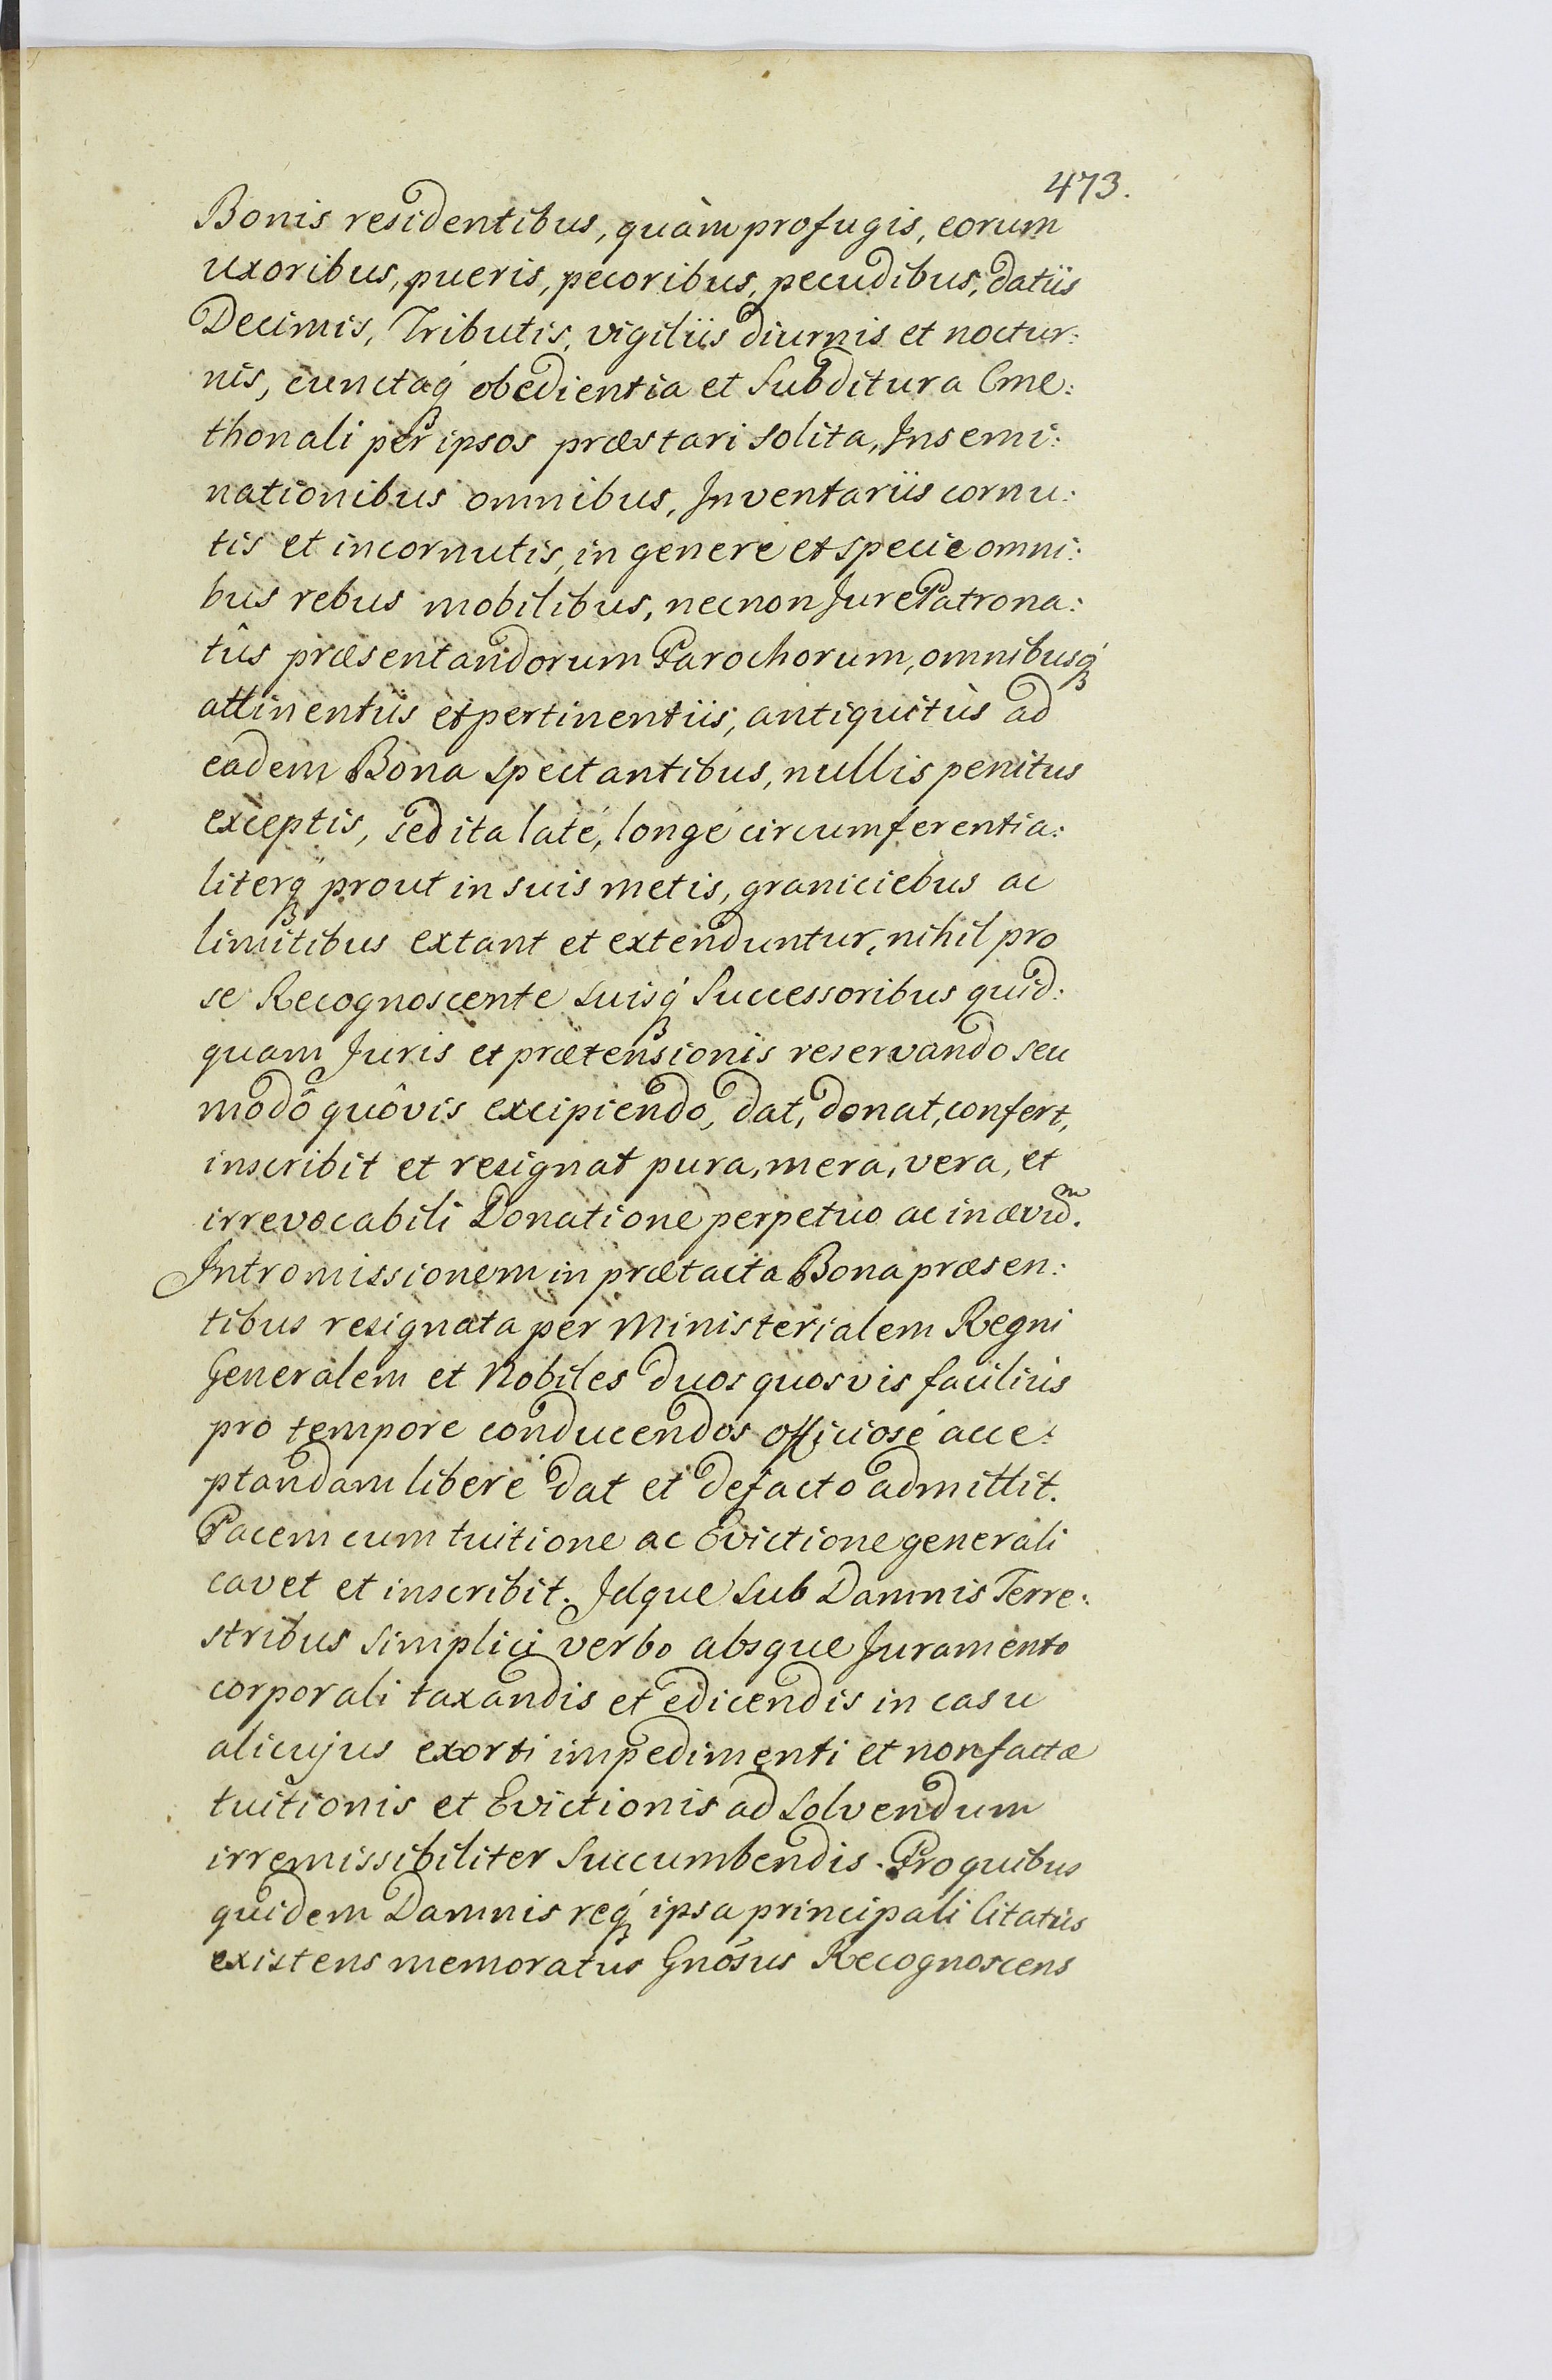 473.
Bonis residentibus, quàm profugis, eorum
uxoribus, pueris, pecoribus, pecudibus, datiis
Decimis, Tributis, vigiliis diurnis et noctur:
nis, cunctaq́ obedientia et Subditura Cme:
thonali per ipsos præstari solita, Insemi:
nationibus omnibus, Inventariis cornu:
tis et incornutis, in genere et specie omni:
bus rebus mobilibus, necnon Jure Patrona:
tûs præsentandorum Parochorum, omnibusq́
attinentiis et pertinentiis, antiquitùs ad
eadem Bona spectantibus, nullis penitus
exceptis, sed ita laté, longé circumferentia:
literq́ prout in suis metis, graniciebus ac
limitibus extant et extenduntur, nihil pro
se Recognoscente suisq́ Successoribus quid:
quam Juris et prætensionis reservando seu
modô quôvis excipiendo, dat, donat, confert,
inscribit et resignat pura, mera, vera, et
irrevocabili Donatione perpetuo ac in ævuᵐ.
Intromissionem in prætacta Bona præsen:
tibus resignata per Ministerialem Regni
Generalem et Nobiles duos quosvis faciliùs
pro tempore conducendos officiosé acce:
ptandam liberé dat et defacto admittit.
Pacem cum tuitione ac Evictione generali
cavet et inscribit. Idque sub Damnis Terre:
stribus simplici verbo absque Juramento
corporali taxandis et edicendis in casu
alicujus exorti impedimenti et non factæ
tuitionis et Evictionis ad solvendum
irremissibiliter succumbendis. Pro quibus
quidem Damnis req́ ipsa principali citatus
existens memoratus Gnösus Recognoscens